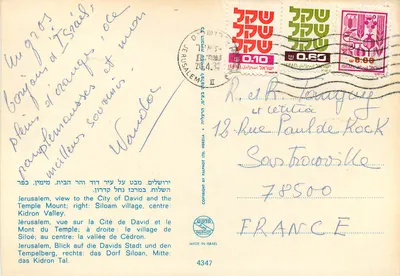 Un gros
bonjour d'Israël,
pleins d'oranges, de
pamplemousses et mon
meilleur souvenir
שקל שקל
שקל שקל
שקל שקל
0.10 0.20
JERUSALEM
R. et A.
et Letitia
12 Rue Paul de Kock
Sartrouville
78500
FRANCE
ירושלים, מבט על עיר דוד והר הבית. מימין, כפר
השלוח. במרכז נחל קדרון.
Jerusalem, view to the City of David and the
Temple Mount; right: Siloam village, centre:
Kidron Valley.
Jerusalem, vue sur la Cité de David et le
Mont du Temple; à droite: le village de
Siloé; au centre: la vallée de Cédron.
Jerusalem, Blick auf die Davids Stadt und den
Tempelberg, rechts: das Dorf Siloan, Mitte:
das Kidron Tal.
MADE IN ISRAEL
4347